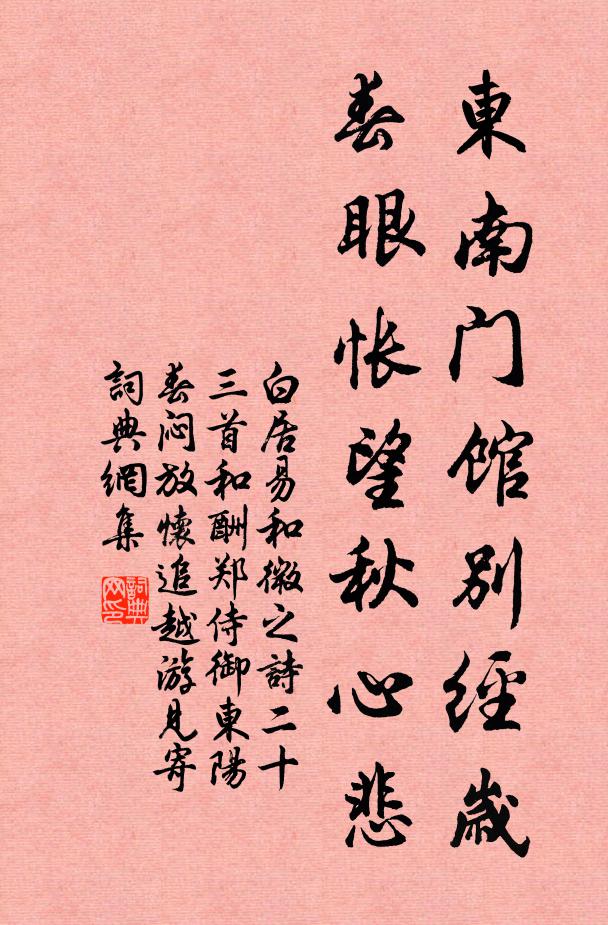 東南门馆別經歲
春眼怅望秋心悲
白居易和微之詩二十
三首和酬郑侍御東陽
春闷放懷追越游見寄
詞典網集
詞典網印